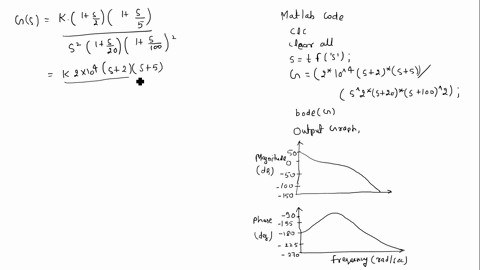 G(s) = K·(1+s/2)(1+s/5)
s²(1+s/20)(1+s/100)²
= K 2×10⁴(s+2)(s+5)
Matlab Code
clc
clear all
s = tf('s');
G = (2*10^4(s+2)*(s+5)/
(s^2*(s+20)*(s+100)^2);
bode(G)
Output Graph,
Magnitude
(dB)
50
0
-50
-100
-150
Phase
(deg)
-90
-135
-180
-225
-270
frequency (rad/sec)